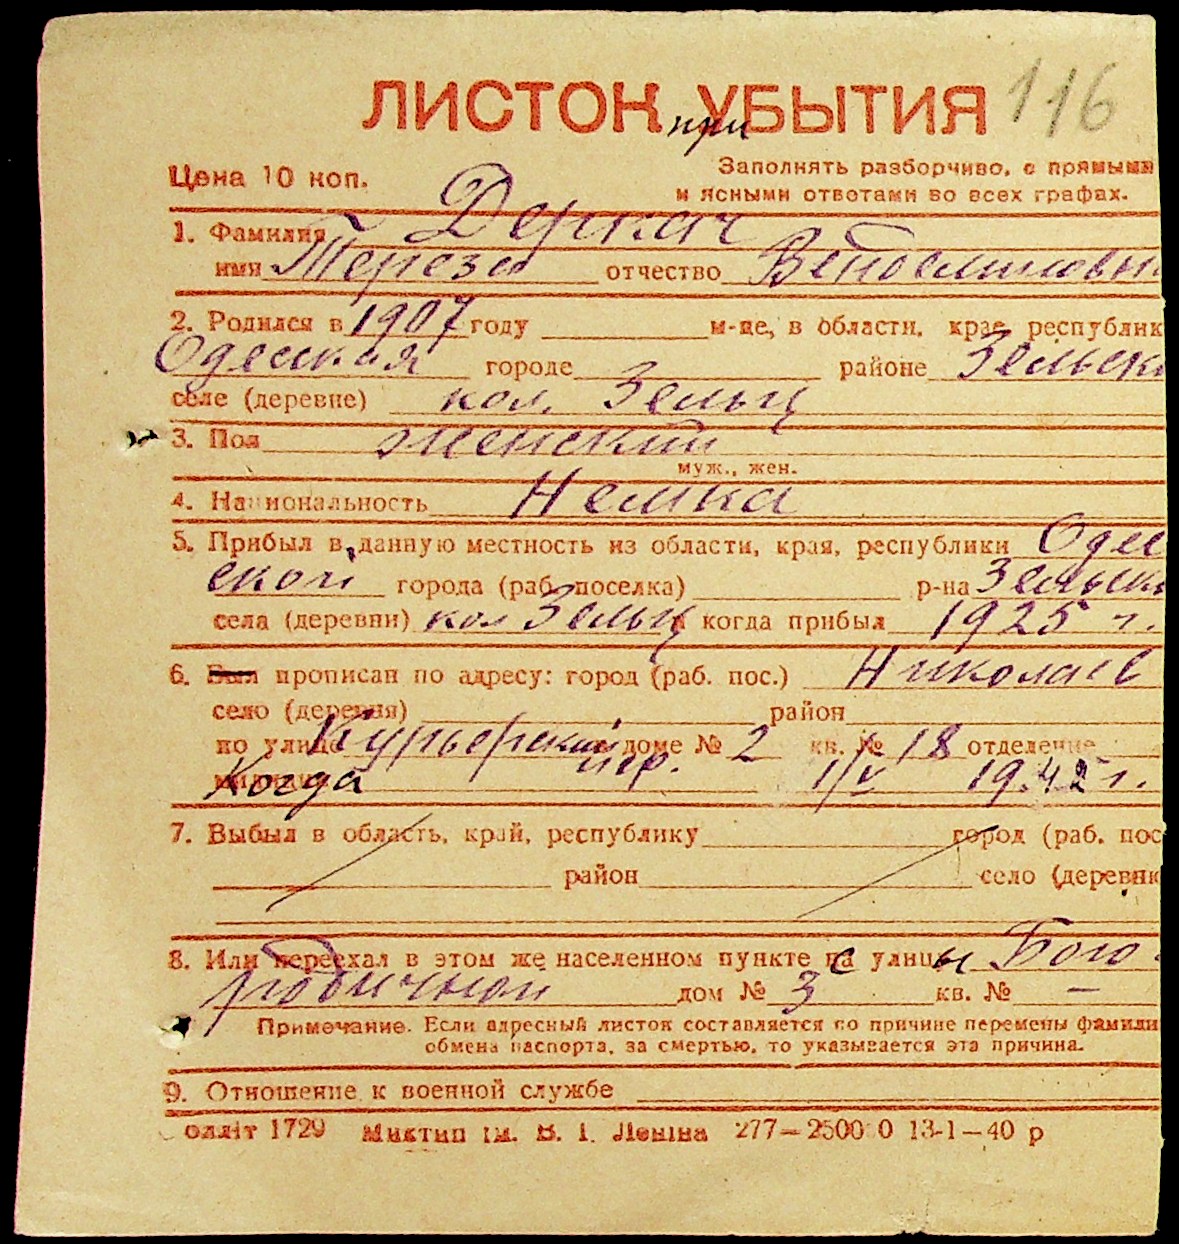 ЛИСТОК при УБЫТИЯ 116
Цена 10 коп.
Заполнять разборчиво, с прямыми
и ясными ответами во всех графах.
1. Фамилия Деркач
имя Тереза отчество
2. Родился в 1907 году м-це, в области, крае, республик
Одесская городе районе Зельск
селе (деревне) кол. Зельц
3. Пол женский
муж., жен.
4. Национальность Немка
5. Прибыл в данную местность из области, края, республики Одес
ской города (раб. поселка) р-на Зельск
села (деревни) кол Зельц и когда прибыл 1925 г.
6. Был прописан по адресу: город (раб. пос.) Николаев
село (деревня) район
по улице Курьерский пер. доме № 2 кв. № 18 отделение
милиции Когда 1/V 1942 г.
7. Выбыл в область, край, республику город (раб. пос
район село (деревню
8. Или переехал в этом же населенном пункте с улицы Бого-
родичной дом № 3 кв. № —
Примечание. Если адресный листок составляется по причине перемены фамили
обмена паспорта, за смертью, то указывается эта причина.
9. Отношение к военной службе
олліт 1729 Миктип ім. В. І. Леніна 277—250000 13-1—40 р